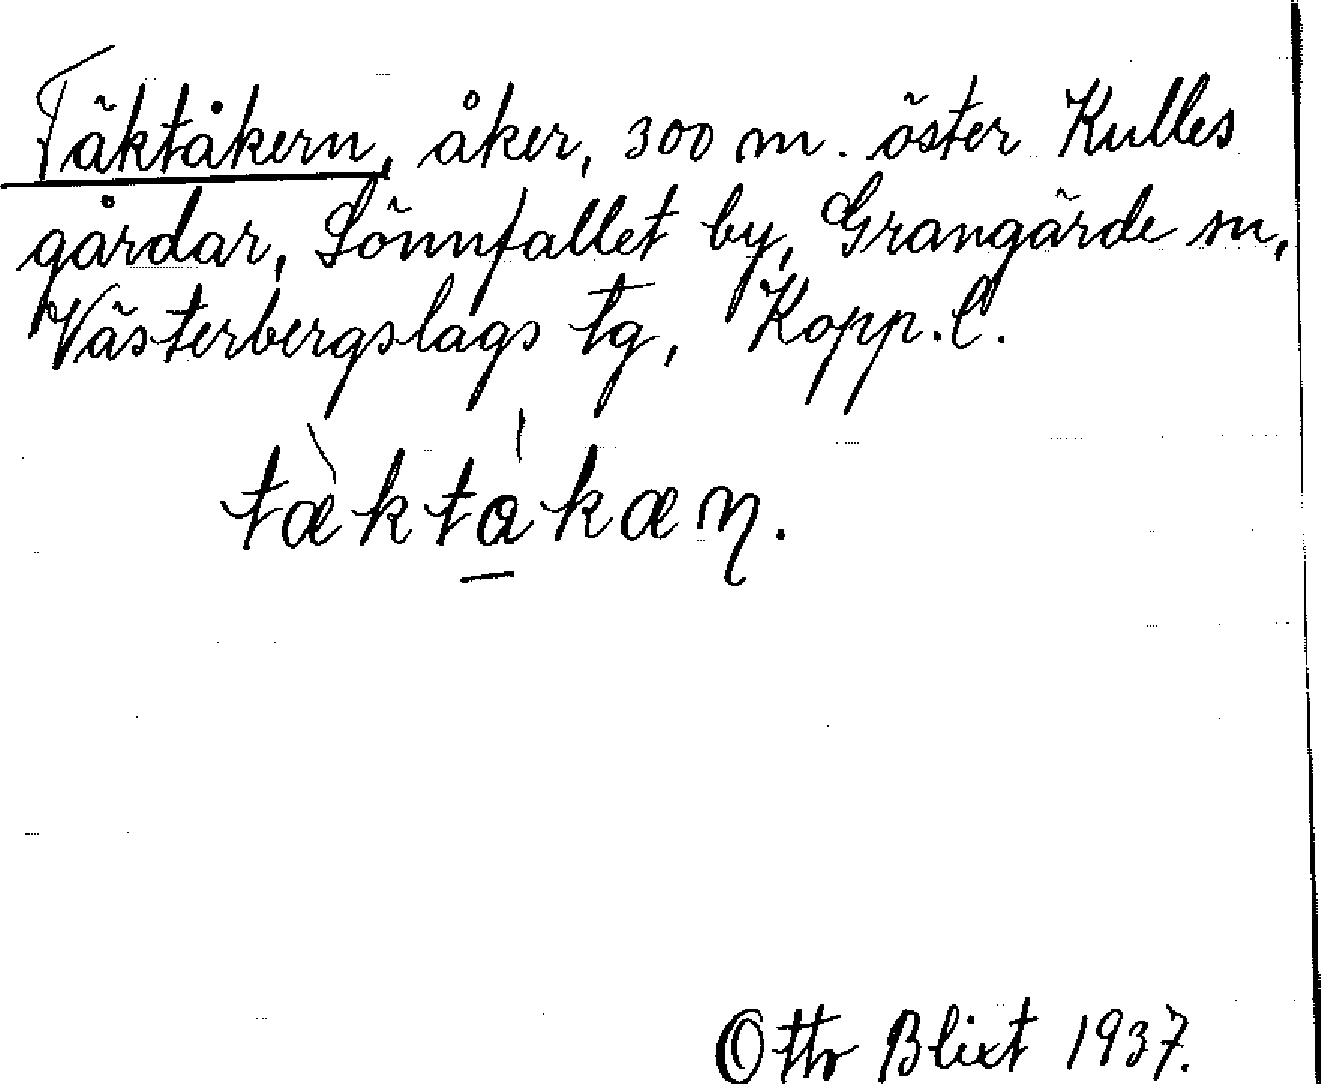 Täktåkern, åker, 300 m. öster Kulles
gårdar, Sönnfallet by, Grangärde sn,
Västerbergslags tg, Kopp. l.
tæ̀ktákæɳ.
Otto Blixt 1937.